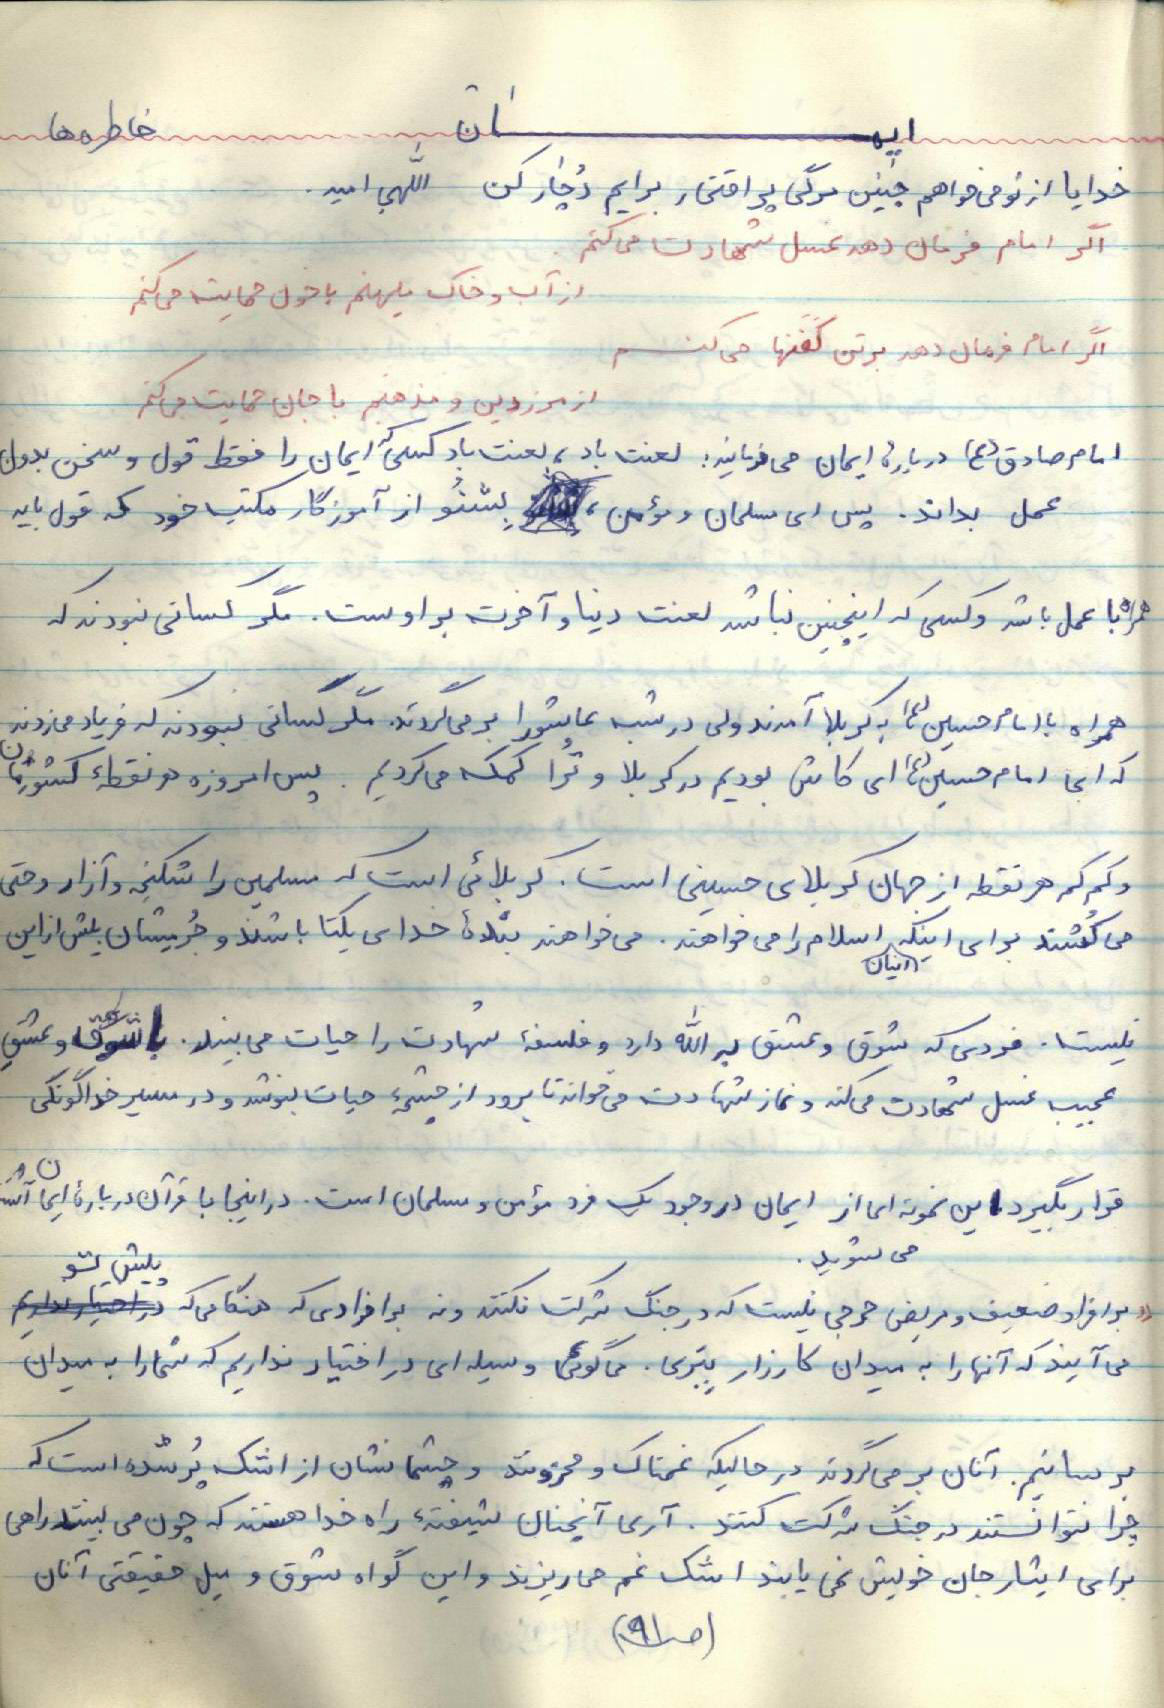 ایمـــــــــان خاطره‌ها
خدایا از تو می‌خواهم چنین مرگی پر افتخار برایم دُچار کن اللّهی امید.
اگر امام فرمان دهد غسل شهادت می‌کنم
از آب و خاک میهنم با خون حمایت می‌کنم
اگر امام فرمان دهد بر تن کفنها می‌کنـــم
از مرز دین و مذهبم با جان حمایت می‌کنم
امام صادق (ع) دربارهٔ ایمان می‌فرماید: لعنت باد، لعنت باد کسی که ایمان را فقط قول و سخن بدون
عمل بداند. پس ای مسلمان و مؤمن، بشنُو از آموزگار مکتب خود که قول باید
همراه با عمل باشد و کسی که اینچنین نباشد لعنت دنیا و آخرت بر اوست. مگر کسانی نبودند که
همراه با امام حسین (ع) به کربلا آمدند ولی در شب عاشورا بر می‌گردند. مگر کسانی نبودند که فریاد می‌زدند
که ای امام حسین (ع) ای کاش بودیم در کربلا و تُرا کمک می‌کردیم. پس امروزه هر نقطهٔ کشورمان
و کم کم هر نقطه از جهان کربلای حسینی است. کربلائی است که مسلمین را شکنجه و آزار و حتی
می‌کُشند برای اینکه اینان اسلام را می‌خواهند. می‌خواهند بندهٔ خدای یکتا باشند و جُرمشان بیش از این
نیست. فردی که شوق و عشق به اللّه دارد و فلسفهٔ شهادت را حیات می‌بیند. با شوق و عشقی
عجیب غسل شهادت می‌کند و نماز شهادت می‌خواند تا برود از چشمهٔ حیات بنوشد و در مسیر خداگونگی
قرار بگیرد این نمونه‌ای از ایمان در وجود یک فرد مؤمن و مسلمان است. در اینجا با قرآن دربارهٔ ایمان آشنا
می‌شوید.
«بر افراد ضعیف و مریض حرجی نیست که در جنگ شرکت نکنند و نه بر افرادی که هنگامی که در اختیار نداریم پیش تو
می‌آیند که آنها را به میدان کارزار ببری. می‌گوئی وسیله‌ای در اختیار نداریم که شما را به میدان
برسانیم. آنان بر می‌گردند در حالیکه غمناک و محزونند و چشمانشان از اشک پُر شده است که
چرا نتوانستند در جنگ شرکت کنند. آری آنچنان شیفتهٔ راه خدا هستند که چون می‌بینند راهی
برای ایثار جان خویش نمی‌یابند اشک غم می‌ریزند و این گواه شوق و میل حقیقتی آنان
(صـ ۹۱)